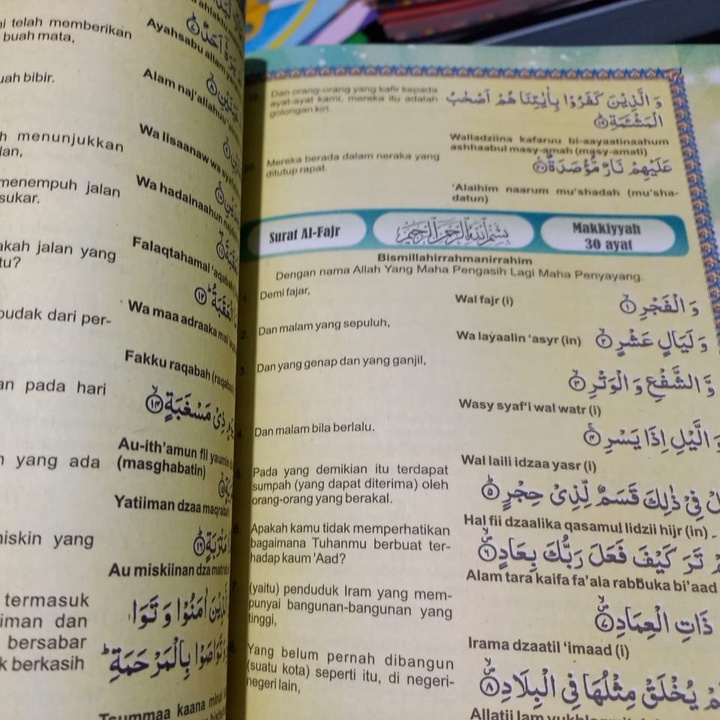 telah memberikan
buah mata,
Ayahsabu allam
uah bibir.
Alam naj'allahuu
menunjukkan
lan,
Wa lisaanaw wa
menempuh jalan
sukar.
Wa hadainaahun
akah jalan yang
tu?
Falaqtahamal 'aqabah
budak dari per-
Wa maa adraaka mal
Fakku raqabah
pada hari
ذِيْ مَسْغَبَةٍ ١٤
Au-ith'amun fii
(masghabatin)
yang ada
Yatiiman dzaa maqrabah
miskin yang
Au miskiinan dza
termasuk
iman dan
bersabar
berkasih
اٰمَنُوْا وَتَوَا
بِالْمَرْحَمَةِ
Tsummaa kaana mina
Dan orang-orang yang kafir kepada
ayat-ayat kami, mereka itu adalah
golongan kiri.
وَالَّذِيْنَ كَفَرُوْا بِاٰيٰتِنَا هُمْ اَصْحٰبُ
الْمَشْئَمَةِ ١٩
Walladziina kafaruu bi-aayaatinaahum
ashhaabul masy-amah (masy-amati)
Mereka berada dalam neraka yang
ditutup rapat.
عَلَيْهِمْ نَارٌ مُّؤْصَدَةٌ ٢٠
'Alaihim naarum mu'shadah (mu'sha-
datun)
Surat Al-Fajr
بِسْمِ اللهِ الرَّحْمٰنِ الرَّحِيْمِ
Makkiyyah
30 ayat
Bismillahirrahmanirrahim
Dengan nama Allah Yang Maha Pengasih Lagi Maha Penyayang.
1. Demi fajar,
Wal fajr (i)
وَالْفَجْرِ ١
2. Dan malam yang sepuluh,
Wa layaalin 'asyr (in)
وَلَيَالٍ عَشْرٍ ٢
3. Dan yang genap dan yang ganjil,
وَّالشَّفْعِ وَالْوَتْرِ ٣
Wasy syaf'i wal watr (i)
4. Dan malam bila berlalu.
وَالَّيْلِ اِذَا يَسْرِ ٤
Wal laili idzaa yasr (i)
5. Pada yang demikian itu terdapat
sumpah (yang dapat diterima) oleh
orang-orang yang berakal.
فِيْ ذٰلِكَ قَسَمٌ لِّذِيْ حِجْرٍ ٥
Hal fii dzaalika qasamul lidzii hijr (in)
6. Apakah kamu tidak memperhatikan
bagaimana Tuhanmu berbuat ter-
hadap kaum 'Aad?
تَرَ كَيْفَ فَعَلَ رَبُّكَ بِعَادٍ ٦
Alam tara kaifa fa'ala rabbuka bi'aad
7. (yaitu) penduduk Iram yang mem-
punyai bangunan-bangunan yang
tinggi,
ذَاتِ الْعِمَادِ ٧
Irama dzaatil 'imaad (i)
8. Yang belum pernah dibangun
(suatu kota) seperti itu, di negeri-
negeri lain,
يُخْلَقْ مِثْلُهَا فِى الْبِلَادِ ٨
Allatii lam